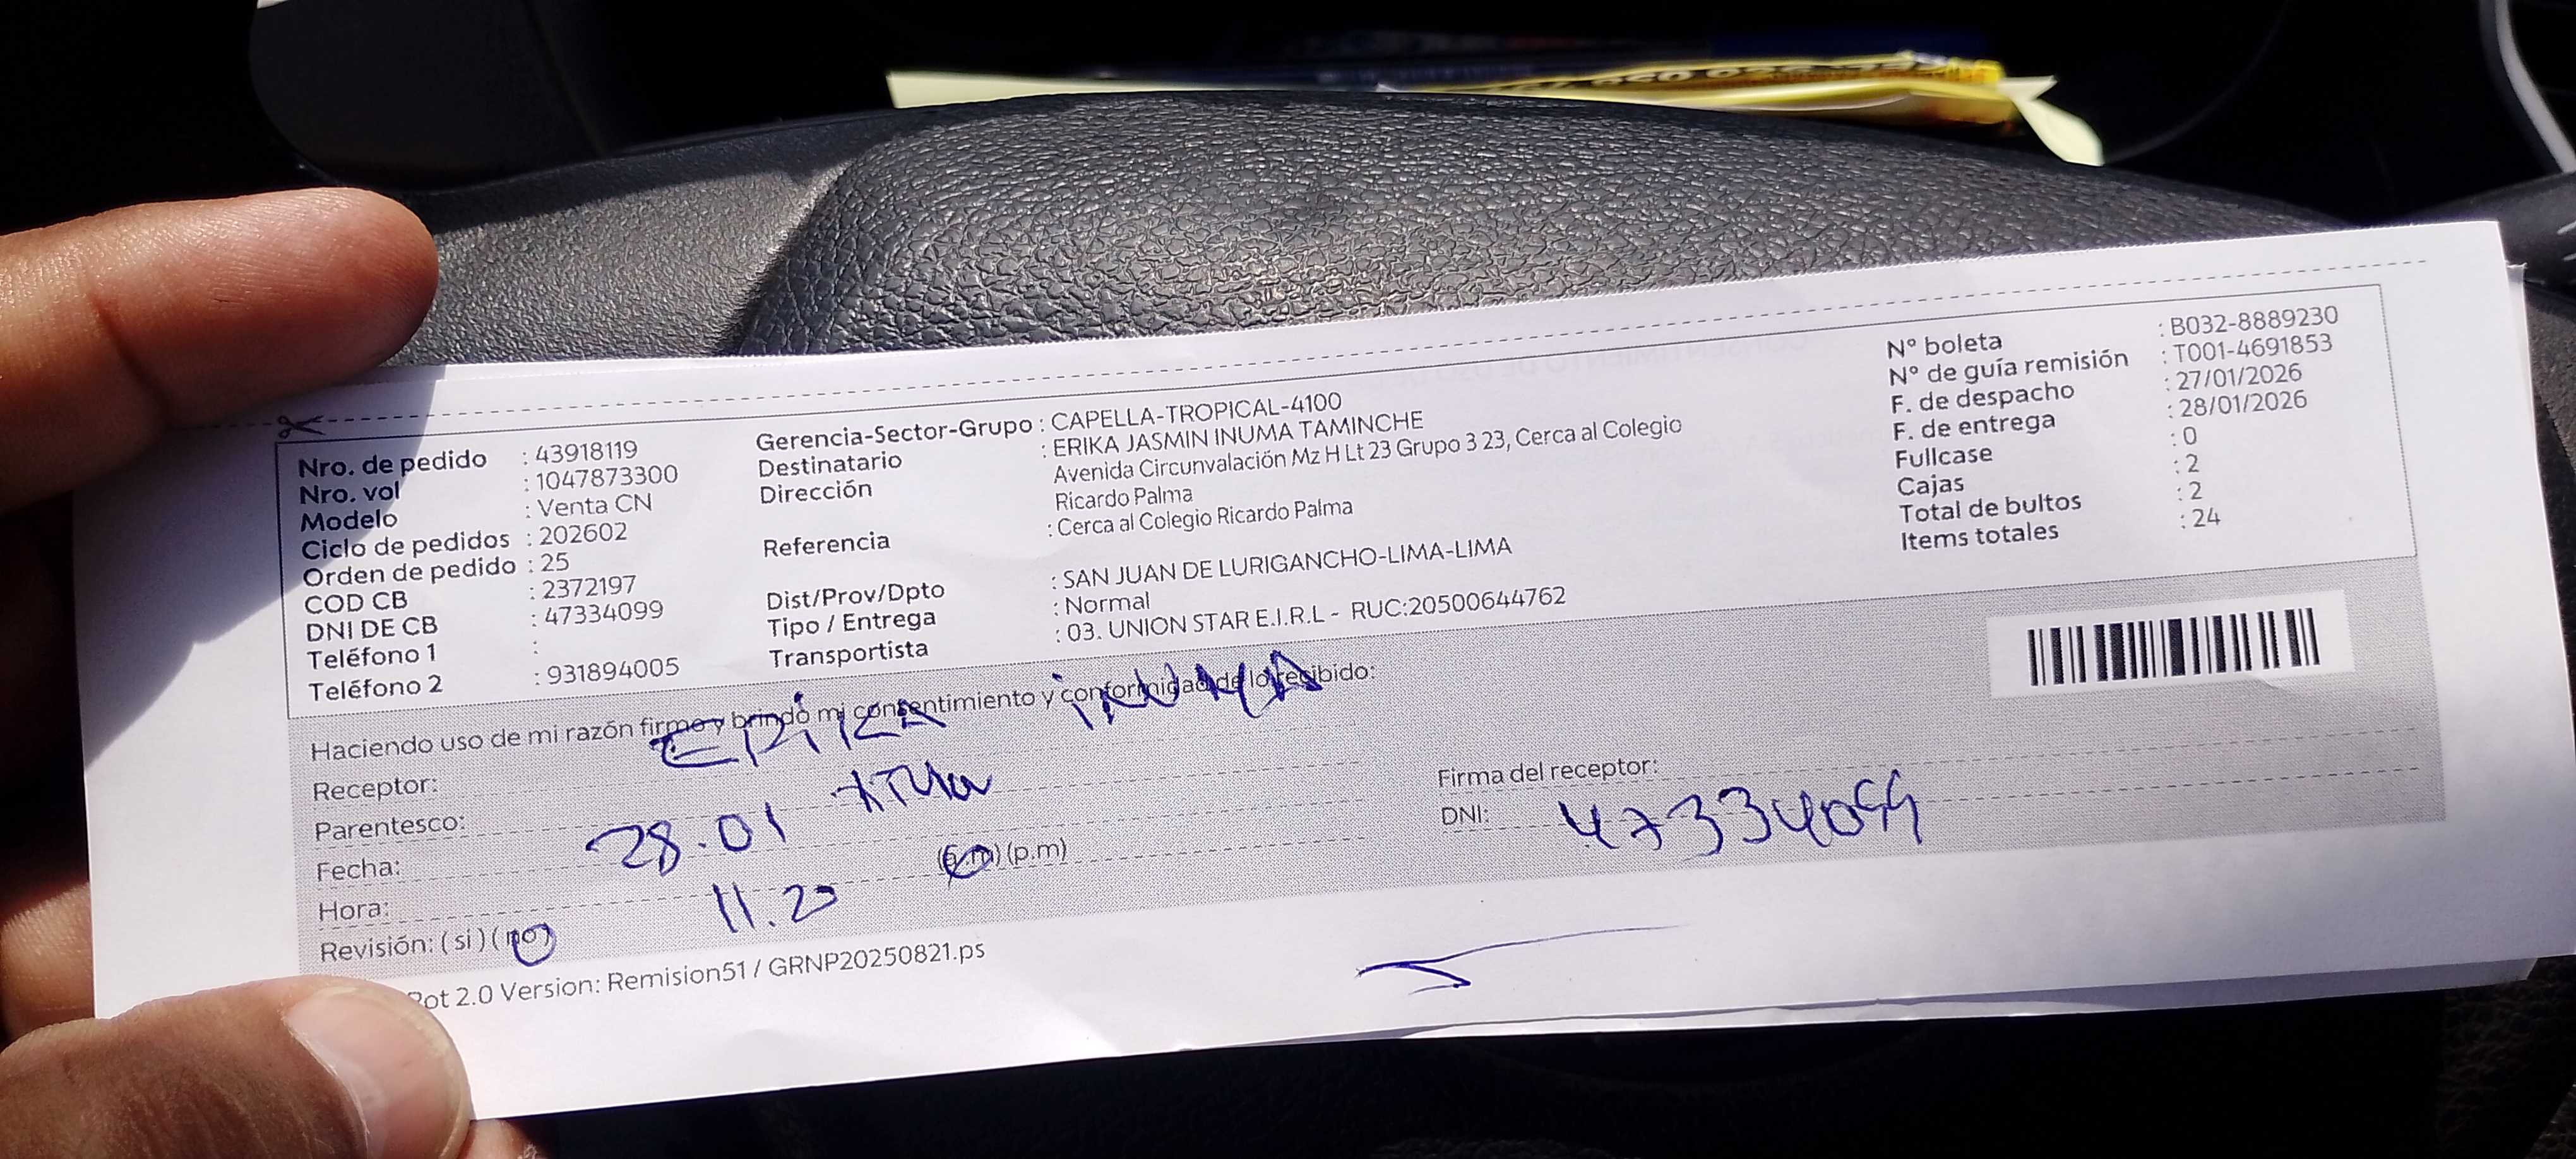 Nro. de pedido : 43918119
Nro. vol : 1047873300
Modelo : Venta CN
Ciclo de pedidos : 202602
Orden de pedido : 25
COD CB : 2372197
DNI DE CB : 47334099
Teléfono 1 :
Teléfono 2 : 931894005
Gerencia-Sector-Grupo : CAPELLA-TROPICAL-4100
Destinatario : ERIKA JASMIN INUMA TAMINCHE
Dirección Avenida Circunvalación Mz H Lt 23 Grupo 3 23, Cerca al Colegio
Ricardo Palma
Referencia : Cerca al Colegio Ricardo Palma
Dist/Prov/Dpto : SAN JUAN DE LURIGANCHO-LIMA-LIMA
Tipo / Entrega : Normal
Transportista : 03. UNION STAR E.I.R.L - RUC:20500644762
N° boleta : B032-8889230
N° de guía remisión : T001-4691853
F. de despacho : 27/01/2026
F. de entrega : 28/01/2026
Fullcase : 0
Cajas : 2
Total de bultos : 2
Items totales : 24
Haciendo uso de mi razón firmo y brindo mi consentimiento y conformidad de lo recibido:
Receptor: ERIKA INUMA
Parentesco:
Fecha: 28.01
Hora: 11.20 (a.m) (p.m)
Revisión: (si) (no)
Firma del receptor:
DNI: 47334099
Pot 2.0 Version: Remision51 / GRNP20250821.ps